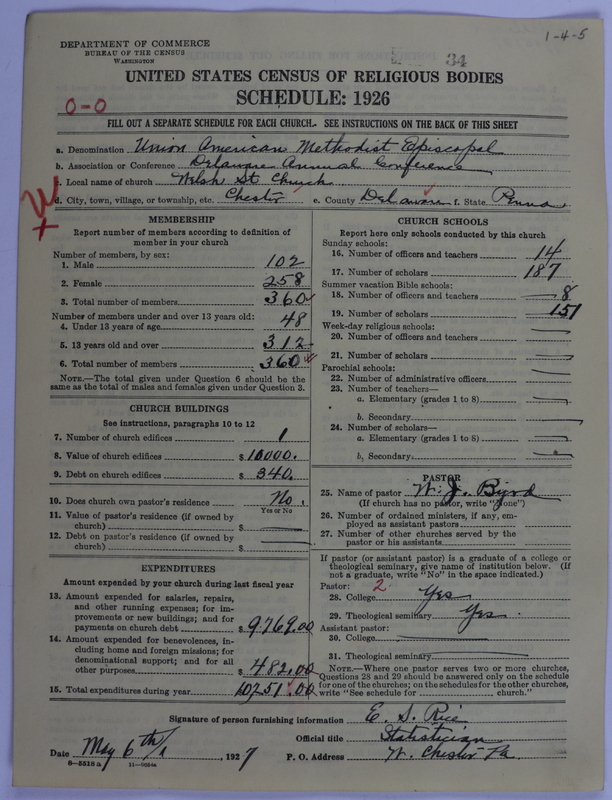 1-4-5
34
DEPARTMENT OF COMMERCE
BUREAU OF THE CENSUS
WASHINGTON
UNITED STATES CENSUS OF RELIGIOUS BODIES
SCHEDULE: 1926
0-0
FILL OUT A SEPARATE SCHEDULE FOR EACH CHURCH. SEE INSTRUCTIONS ON THE BACK OF THIS SHEET
a. Denomination Union American Methodist Episcopal
b. Association or Conference Delaware Annual Conference
c. Local name of church Welsh St Church
d. City, town, village, or township, etc. Chester e. County Delaware f. State Penna
MEMBERSHIP
Report number of members according to definition of
member in your church
Number of members, by sex:
1. Male 102
2. Female 258
3. Total number of members 360
Number of members under and over 13 years old:
4. Under 13 years of age 48
5. 13 years old and over 312
6. Total number of members 360
NOTE.—The total given under Question 6 should be the
same as the total of males and females given under Question 3.
CHURCH BUILDINGS
See instructions, paragraphs 10 to 12
7. Number of church edifices 1
8. Value of church edifices $10000.
9. Debt on church edifices $340.
10. Does church own pastor's residence No.
Yes or No
11. Value of pastor's residence (if owned by
church) $
12. Debt on pastor's residence (if owned by
church) $
EXPENDITURES
Amount expended by your church during last fiscal year
13. Amount expended for salaries, repairs,
and other running expenses; for im-
provements or new buildings; and for
payments on church debt $9769.00
14. Amount expended for benevolences, in-
cluding home and foreign missions; for
denominational support; and for all
other purposes $482.00
15. Total expenditures during year 10251.00
CHURCH SCHOOLS
Report here only schools conducted by this church
Sunday schools:
16. Number of officers and teachers 14
17. Number of scholars 187
Summer vacation Bible schools:
18. Number of officers and teachers 8
19. Number of scholars 151
Week-day religious schools:
20. Number of officers and teachers
21. Number of scholars
Parochial schools:
22. Number of administrative officers
23. Number of teachers—
a. Elementary (grades 1 to 8)
b. Secondary
24. Number of scholars—
a. Elementary (grades 1 to 8)
b. Secondary
PASTOR
25. Name of pastor W. J. Byrd
(If church has no pastor, write "None")
26. Number of ordained ministers, if any, em-
ployed as assistant pastors
27. Number of other churches served by the
pastor or his assistants
If pastor (or assistant pastor) is a graduate of a college or
theological seminary, give name of institution below. (If
not a graduate, write "No" in the space indicated.)
Pastor: 2
28. College Yes
29. Theological seminary Yes.
Assistant pastor:
30. College
31. Theological seminary
NOTE.—Where one pastor serves two or more churches,
Questions 28 and 29 should be answered only on the schedule
for one of the churches; on the schedules for the other churches,
write "See schedule for church."
Signature of person furnishing information E. S. Rice
Official title Statistician
Date May 6th, 1927 P. O. Address W. Chester Pa.
8—5518a 11—9224a